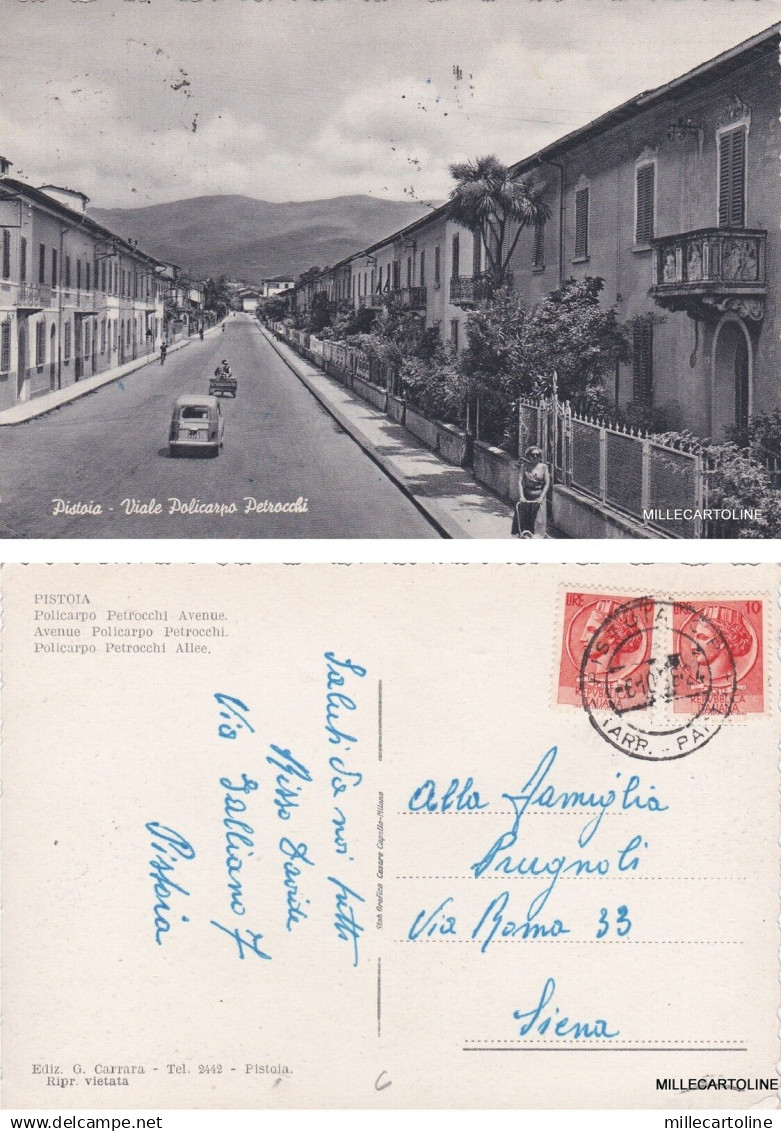 Pistoia - Viale Policarpo Petrocchi
MILLECARTOLINE
PISTOIA
Policarpo Petrocchi Avenue.
Avenue Policarpo Petrocchi.
Policarpo Petrocchi Allee.
Saluti da noi tutti
Risso Davide
Via Dalliano 7
Pistoia
Stab. Grafico Cesare Capello-Milano
LIRE
10
REPUBBLICA
ITALIANA
PISTOIA
ARR.
Alla Famiglia
Prugnoli
Via Roma 33
Siena
Ediz. G. Carrara - Tel. 2442 - Pistoia.
Ripr. vietata
6
MILLECARTOLINE
millecartoline